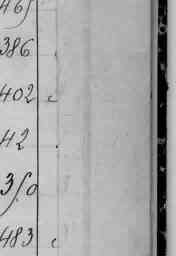 465
386
402
42
350
483